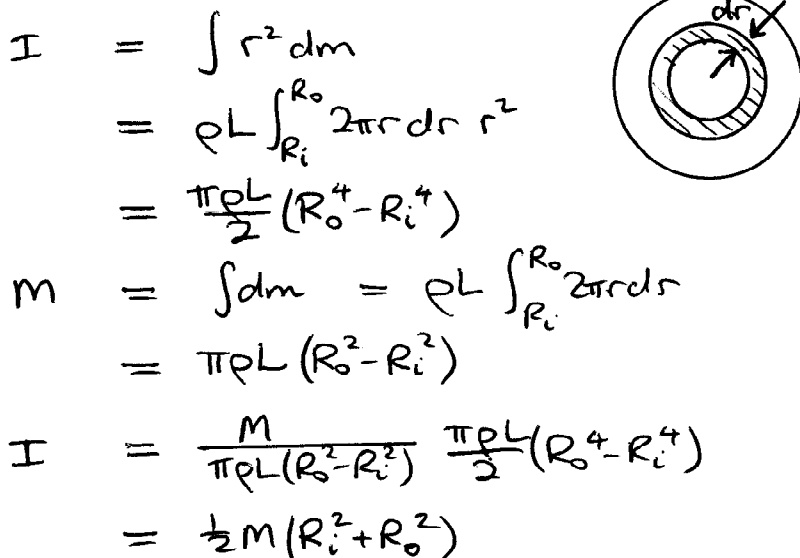 I = ∫ r² dm
dr
= ρL ∫_{Ri}^{Ro} 2πr dr r²
= πρL/2 (Ro⁴ - Ri⁴)
m = ∫dm = ρL ∫_{Ri}^{Ro} 2πr dr
= πρL (Ro² - Ri²)
I = M/(πρL(Ro² - Ri²)) πρL/2 (Ro⁴ - Ri⁴)
= ½ M (Ri² + Ro²)